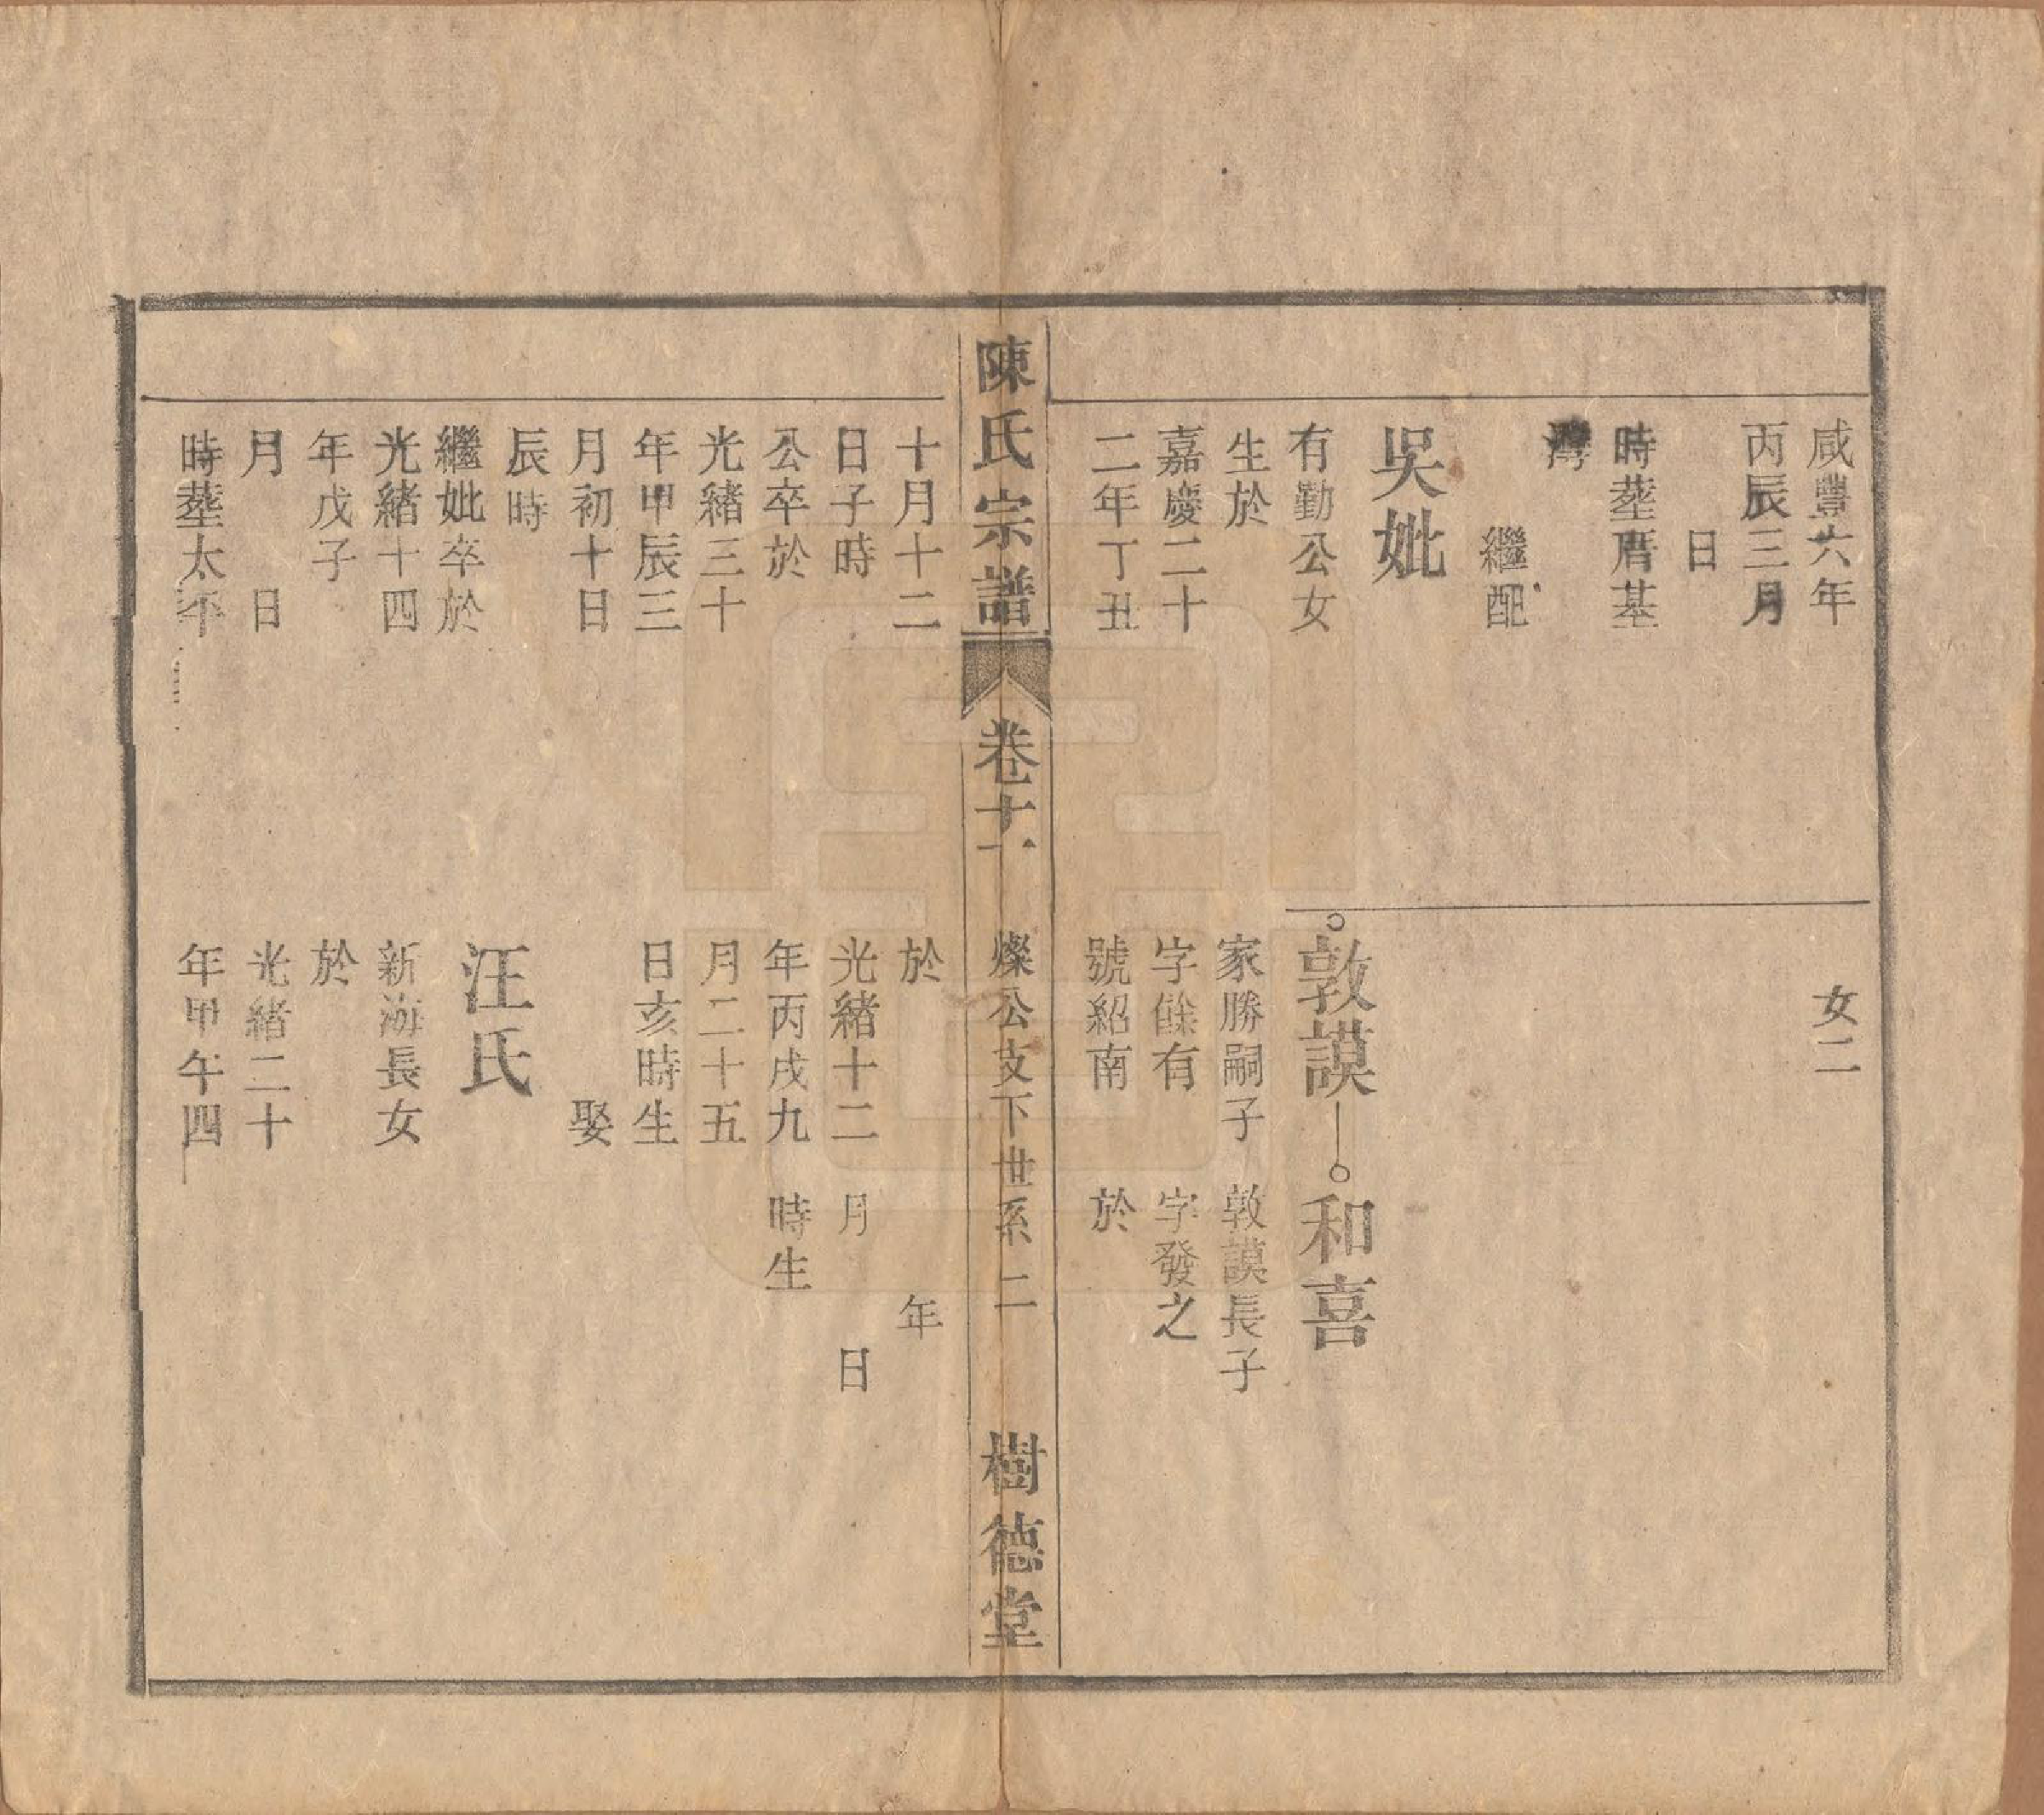 咸豐六年
丙辰三月
日
時塟厝基
灣
繼配
吳妣
有勤公女
生於
嘉慶二十
二年丁丑
女二
敦謨
和喜
家勝嗣子
敦謨長子
字餘有
字發之
號紹南
於
陳氏宗譜
卷十一
燦公支下世系
二
樹德堂
十月十二
日子時
公卒於
光緒三十
年甲辰三
月初十日
辰時
繼妣卒於
光緒十四
年戊子
月 日
時塟太平
於 年
光緒十二 月 日
年丙戌九 時生
月二十五
日亥時生
娶
汪氏
新海長女
於
光緒二十
年甲午四